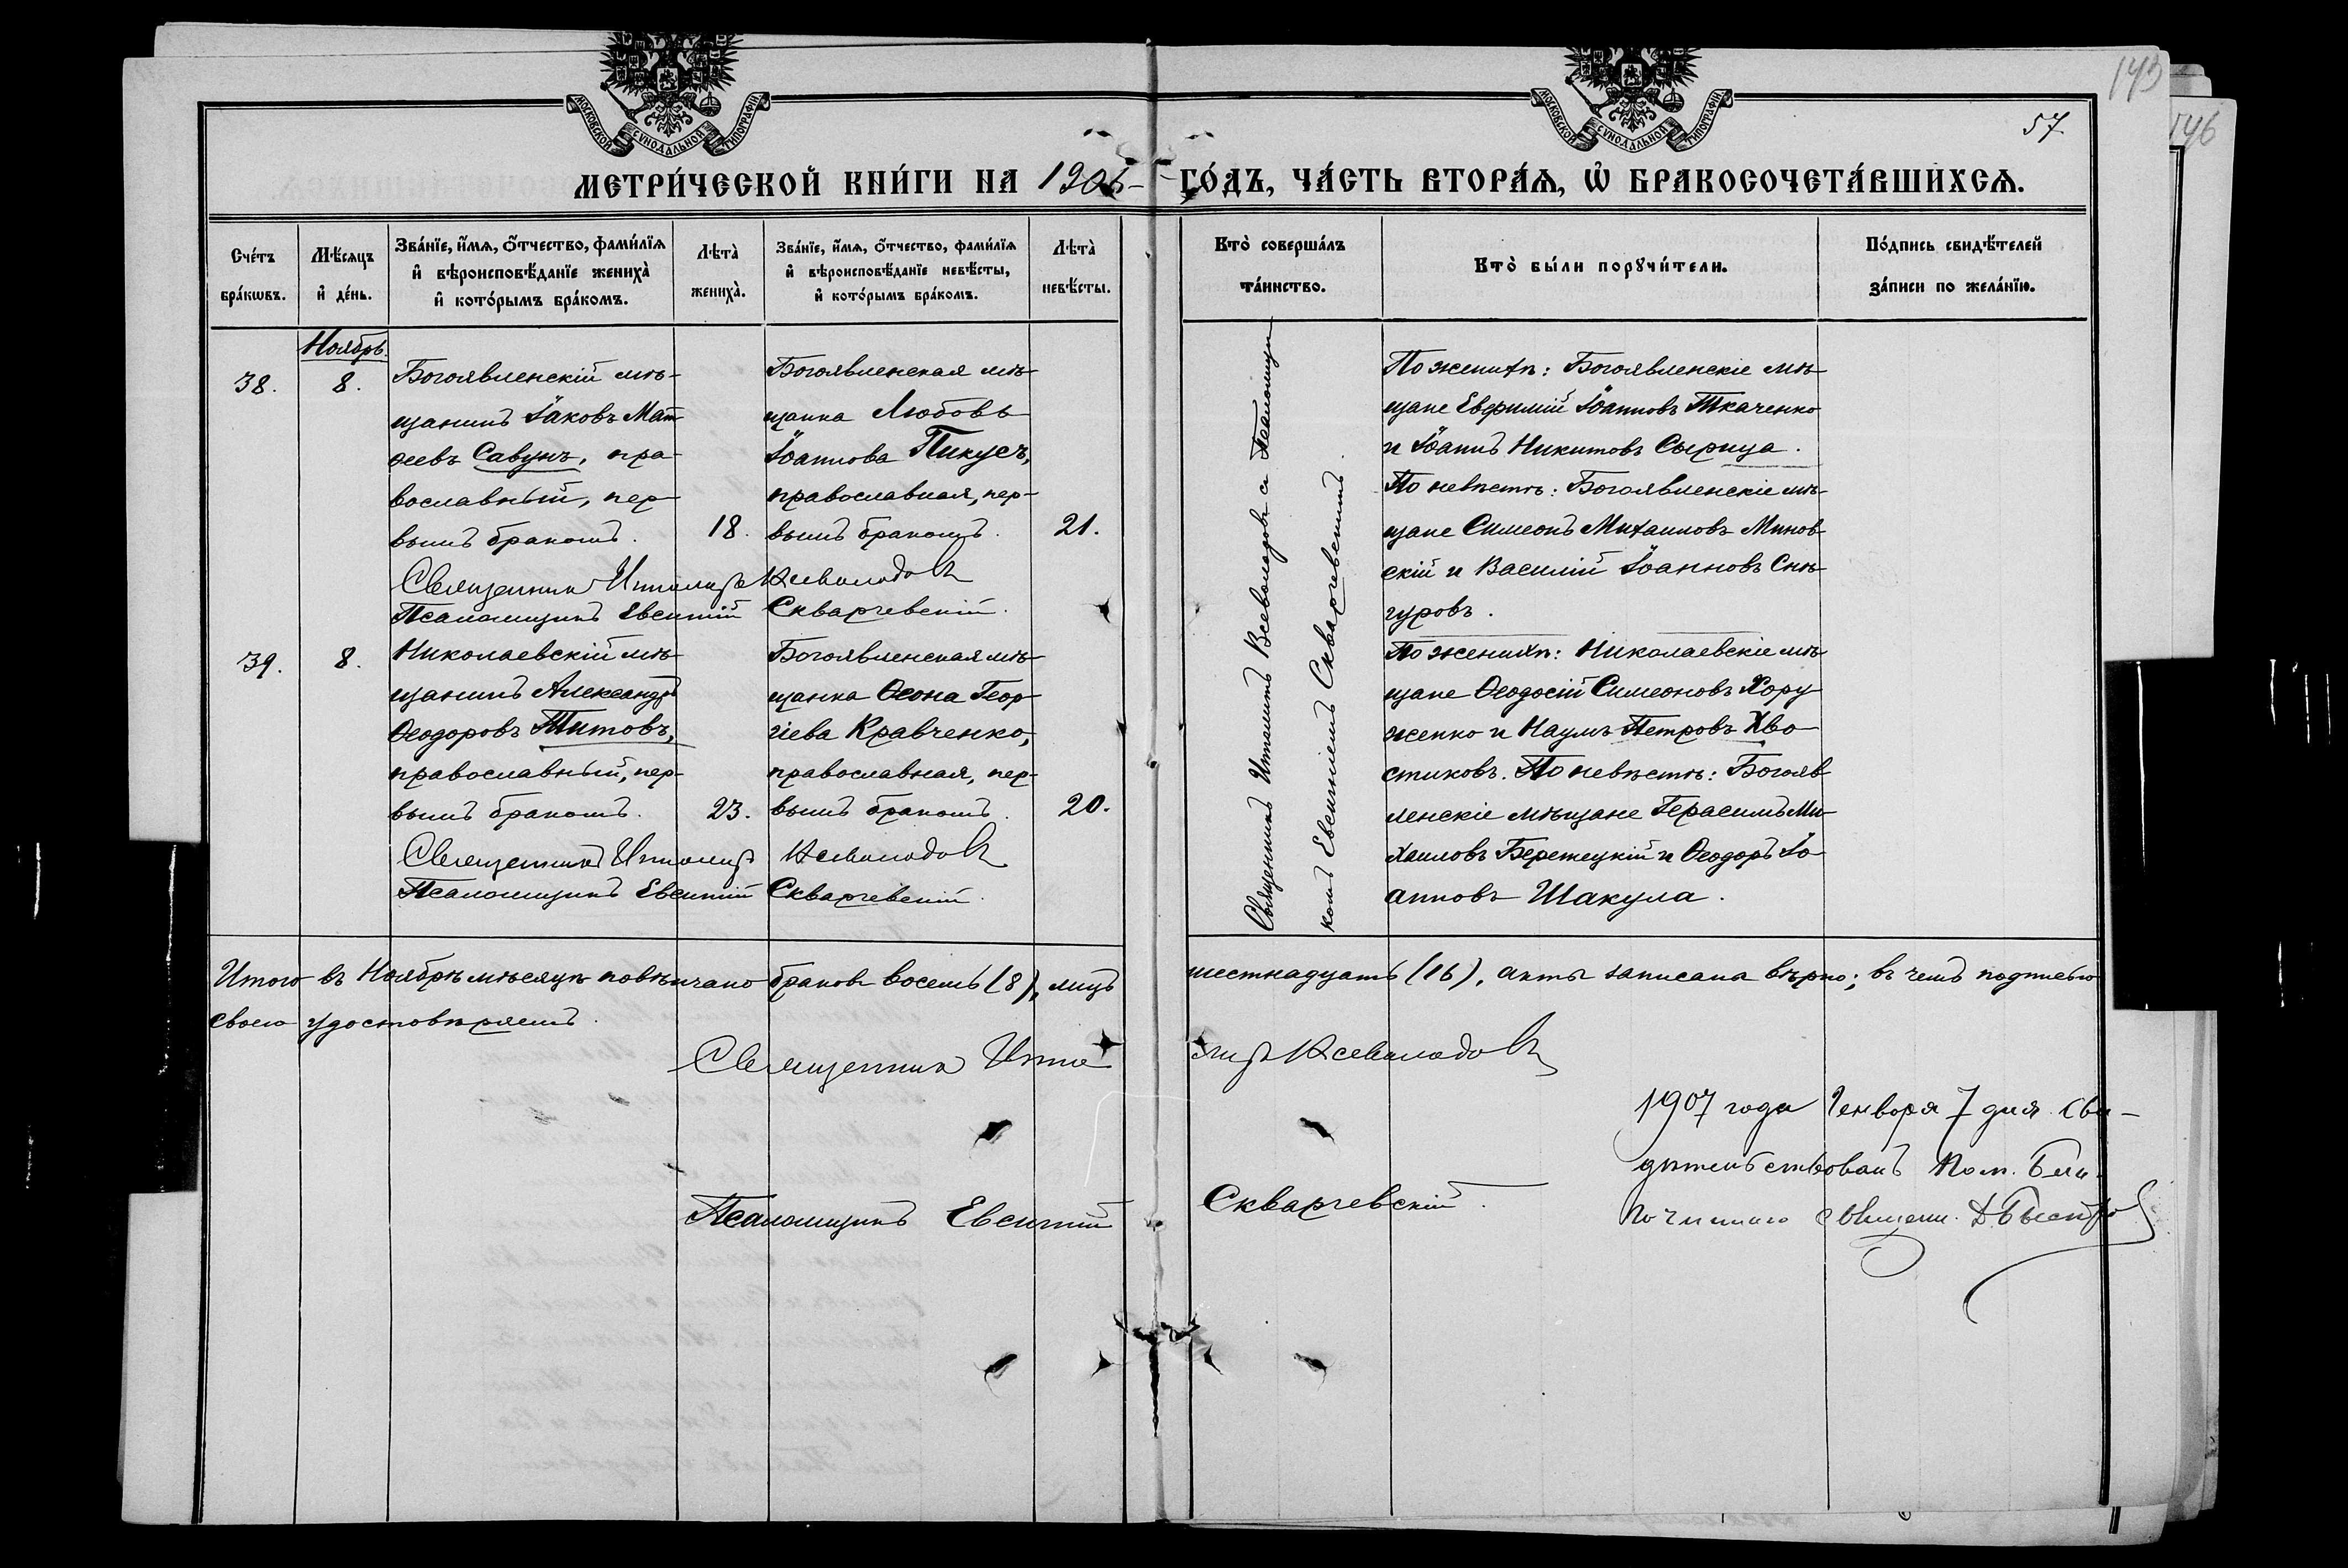 143
146
57
МОСКОВСКОЙ СУНОДАЛЬНОЙ ТИПОГРАФІИ
МОСКОВСКОЙ СУНОДАЛЬНОЙ ТИПОГРАФІИ
МЕТРИ́ЧЕСКОЙ КНИ́ГИ НА 1906 ГО́ДЪ, ЧА́СТЬ ВТОРА́Ѧ, Ѡ҆ БРАКОСОЧЕТА́ВШИХСѦ.
Сче́тъ бра́кѡвъ.
Мѣ́сѧцъ и҆ де́нь.
Зва́нїе, и҆́мѧ, ѻ҆́тчество, фами́лїѧ
и҆ вѣроисповѣ́данїе жениха̀
и҆ кото́рымъ бра́комъ.
Лѣта̀ жениха̀.
Зва́нїе, и҆́мѧ, ѻ҆́тчество, фами́лїѧ
и҆ вѣроисповѣ́данїе невѣ́сты,
и҆ кото́рымъ бра́комъ.
Лѣта̀ невѣ́сты.
Кто̀ соверша́лъ та́инство.
Кто̀ бы́ли порꙋчи́тели.
По́дпись свидѣ́телей за́писи по жела́нїю.
Ноябрь.
38.
8.
Богоявленскій мѣ-
щанинъ Іаковъ Мат
ѳеевъ Савунъ, пра-
вославный, пер-
вымъ бракомъ.
18.
Богоявленская мѣ-
щанка Любовь
Іоаннова Пикусъ,
православная, пер-
вымъ бракомъ.
21.
Священникъ Ипполитъ Всеволодовъ
Псаломщикъ Евсигній Скваржевскій.
Священникъ Ипполитъ Всеволодовъ съ Псаломщи-
комъ Евсигніемъ Скваржевскимъ.
По женихѣ: Богоявленскіе мѣ-
щане Евфимій Іоанновъ Ткаченко
и Іоаннъ Никитовъ Сырица.
По невѣстѣ: Богоявленскіе мѣ-
щане Симеонъ Михаиловъ Минов
скій и Василій Іоанновъ Снѣ-
гуровъ.
39.
8.
Николаевскій мѣ-
щанинъ Александръ
Ѳеодоровъ Титовъ,
православный, пер-
вымъ бракомъ.
23.
Богоявленская мѣ-
щанка Ѳеона Геор-
гіева Кравченко,
православная, пер-
вымъ бракомъ.
20.
Священникъ Ипполитъ Всеволодовъ
Псаломщикъ Евсигній Скваржевскій.
По женихѣ: Николаевскіе мѣ-
щане Ѳеодосій Симеоновъ Хору-
женко и Наумъ Петровъ Хво-
стиковъ. По невѣстѣ: Богояв
ленскіе мѣщане Герасимъ Ми-
хаиловъ Бережецкій и Ѳеодоръ Іо-
анновъ Шакула.
Итого въ Ноябрѣ мѣсяцѣ повѣнчано браковъ восемь (8), лицъ шестнадцать (16), акты записаны вѣрно; въ чемъ подписью
своею удостовѣряемъ.
Священникъ Ипполитъ Всеволодовъ
Псаломщикъ Евсигній Скваржевскій.
1907 года Генваря 7 дня. Сви-
дѣтельствовалъ Пом. Бла-
гочиннаго Священ. Д. Быстро